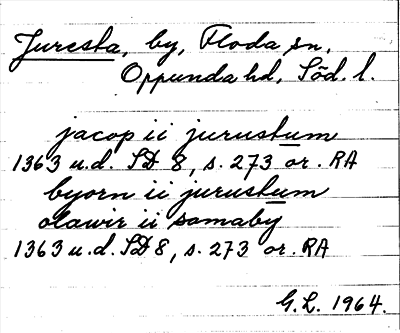 Juresta, by, Floda sn,
Oppunda hd, Söd. l.
jacop ii jurustum
1363 u.d. SD 8, s. 273 or. RA
byorn ii jurustum
olawir ii somaby
1363 u.d. SD 8, s. 273 or. RA
G.L. 1964.